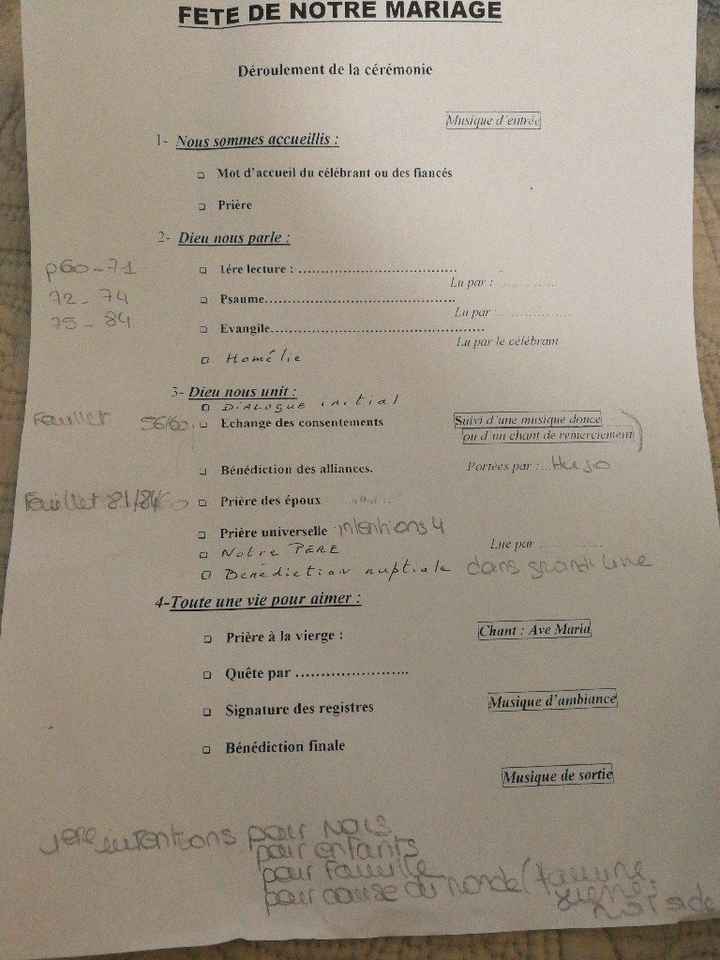 FETE DE NOTRE MARIAGE
Déroulement de la cérémonie
Musique d'entrée
1- Nous sommes accueillis :
❑ Mot d'accueil du célébrant ou des fiancés
❑ Prière
2- Dieu nous parle :
p60-71 ❑ 1ére lecture : ....................................
Lu par : ..............
72-74 ❑ Psaume.............................................
Lu par ..................
75-84 ❑ Evangile..................................................
Lu par le célébrant
❑ Homélie
3- Dieu nous unit :
❑ DIALOGUE initial
Feuillet 56/60 ❑ Echange des consentements Suivi d'une musique douce
ou d'un chant de remerciement
❑ Bénédiction des alliances. Portées par : ..Hugo
Feuillet 81/84 ❑ Prière des époux
❑ Prière universelle intentions 4 Lue par ...............
❑ Notre PERE
❑ Bénédiction nuptiale dans grand livre
4-Toute une vie pour aimer :
❑ Prière à la vierge : Chant : Ave Maria
❑ Quête par ........................
❑ Signature des registres Musique d'ambiance
❑ Bénédiction finale
Musique de sortie
1ere intentions pour Nous
pour enfants
pour famille
pour cause du monde (famine
guerre